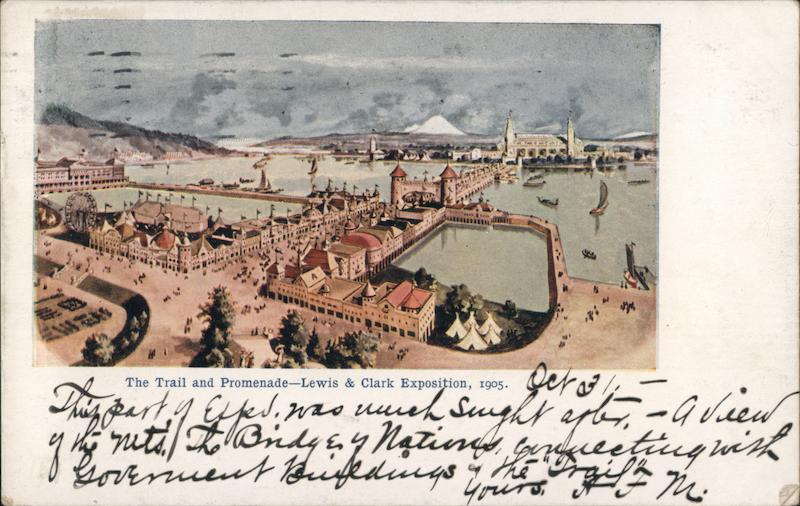 The Trail and Promenade—Lewis & Clark Exposition, 1905.
Oct 31. —
This part of Expd. was much sought after. — A view
of the Mts. / The Bridge of Nations, connecting with
Goverment Buildings & the "Trail"
Yours. H F M.